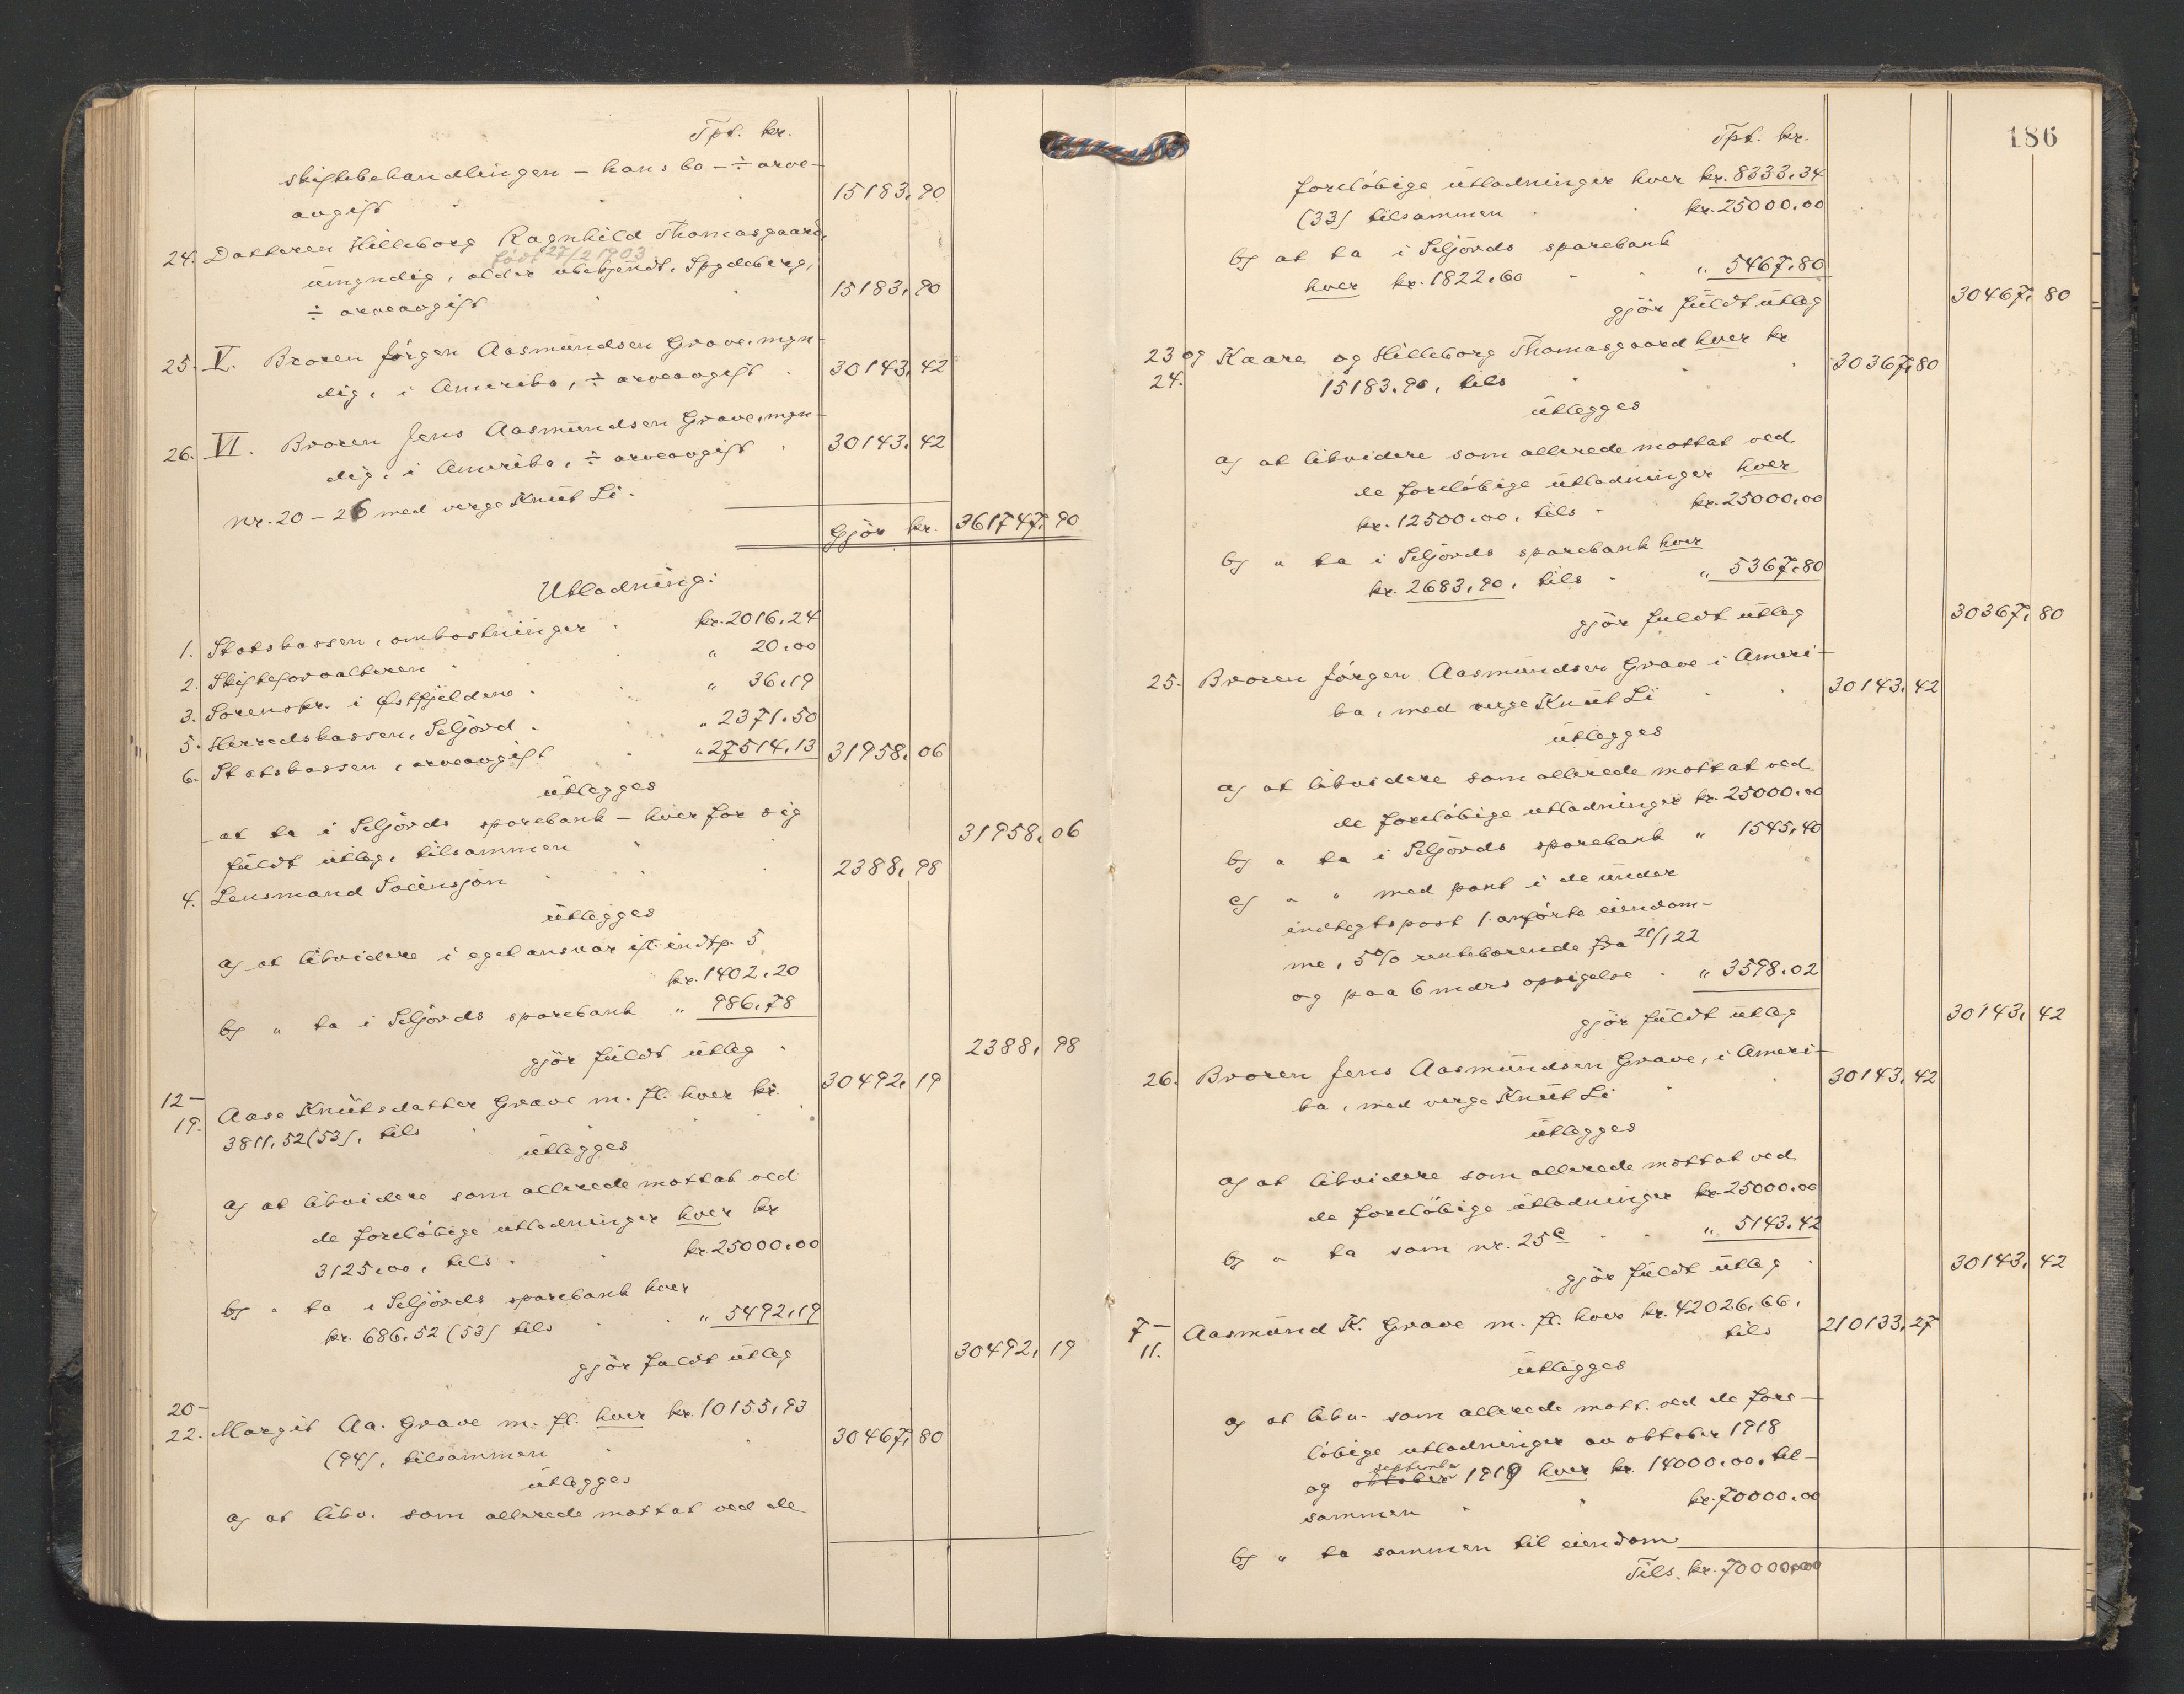 Tpt. kr.
skiftebehandlingen – hans bo – ÷ arve-
avgift 15183,90
24. Datteren Hilleborg Ragnhild Thomasgaard,
født 27/2 1903
umyndig, alder ubekjendt, Spydeberg,
÷ arveavgift 15183,90
25. V. Broren Jørgen Aasmundsen Grave, myn-
dig, i Amerika, ÷ arveavgift 30143,42
26. VI. Broren Jens Aasmundsen Grave, myn-
dig, i Amerika, ÷ arveavgift 30143,42
nr. 20 – 26 med verge Knut Li.
Gjør kr. 361747,90
Utlodning:
1. Statskassen, omkostninger kr. 2016,24
2. Skifteforvalteren " 20,00
3. Sorenskr. i Østfjeldene " 36,19
5. Herredskassen, Seljord " 2371,50
6. Statskassen, arveavgift " 27514,13 31958,06
utlegges
at ta i Seljords sparebank – hver for sig
fuldt utleg, tilsammen 31958,06
4. Lensmand Solensjøn 2388,98
utlegges
a) at likvidere i eget ansvar ifl. indtp. 5
kr. 1402,20
b) " ta i Seljords sparebank " 986,78
gjør fuldt utleg 2388,98
12–
19. Aase Knutsdatter Grave m. fl. hver kr. 30492,19
3811,52 (53), tils
utlegges
a) at likvidere som allerede mottat ved
de foreløbige utlodninger hver kr
3125,00, tils kr. 25000,00
b) " ta i Seljords sparebank hver
kr. 686,52 (53) tils " 5492,19
gjør fuldt utleg 30492,19
20–
22. Margit Aa. Grave m. fl. hver kr. 10155,93
(94), tilsammen 30467,80
utlegges
a) at likv. som allerede mottat ved de
186
Tpt. kr.
foreløbige utlodninger hver kr. 8333,34
(33) tilsammen kr. 25000,00
b) at ta i Seljords sparebank
hver kr. 1822,60 " 5467,80
gjør fuldt utleg 30467,80
23 og Kaare og Hilleborg Thomasgaard hver kr
24. 15183,90, tils 30367,80
utlegges
a) at likvidere som allerede mottat ved
de foreløbige utlodninger hver
kr. 12500,00, tils kr. 25000,00
b) " ta i Seljords sparebank hver
kr. 2683,90, tils " 5367,80
gjør fuldt utleg 30367,80
25. Broren Jørgen Aasmundsen Grave i Ameri-
ka, med verge Knut Li 30143,42
utlegges
a) at likvidere som allerede mottat ved
de foreløbige utlodninger kr. 25000,00
b) " ta i Seljords sparebank " 1545,40
c) " " med pant i de under
indtegtspost 1 anførte eiendom-
me, 5% rentebærende fra 21/1 22
og paa 6 mdrs opsigelse " 3598,02
gjør fuldt utleg 30143,42
26. Broren Jens Aasmundsen Grave, i Ameri-
ka, med verge Knut Li 30143,42
utlegges
a) at likvidere som allerede mottat ved
de foreløbige utlodninger kr. 25000,00
b) " ta som nr. 25c " 5143,42
gjør fuldt utleg 30143,42
7–
11. Aasmund K. Grave m. fl. hver kr. 42026,66,
tils 210133,27
utlegges
a) at likv. som allerede mott. ved de fore-
løbige utlodninger av oktober 1918
september
og oktober 1919 hver kr. 14000,00, til-
sammen kr. 70000,00
b) " ta sammen til eiendom
Tils. kr. 70000,00